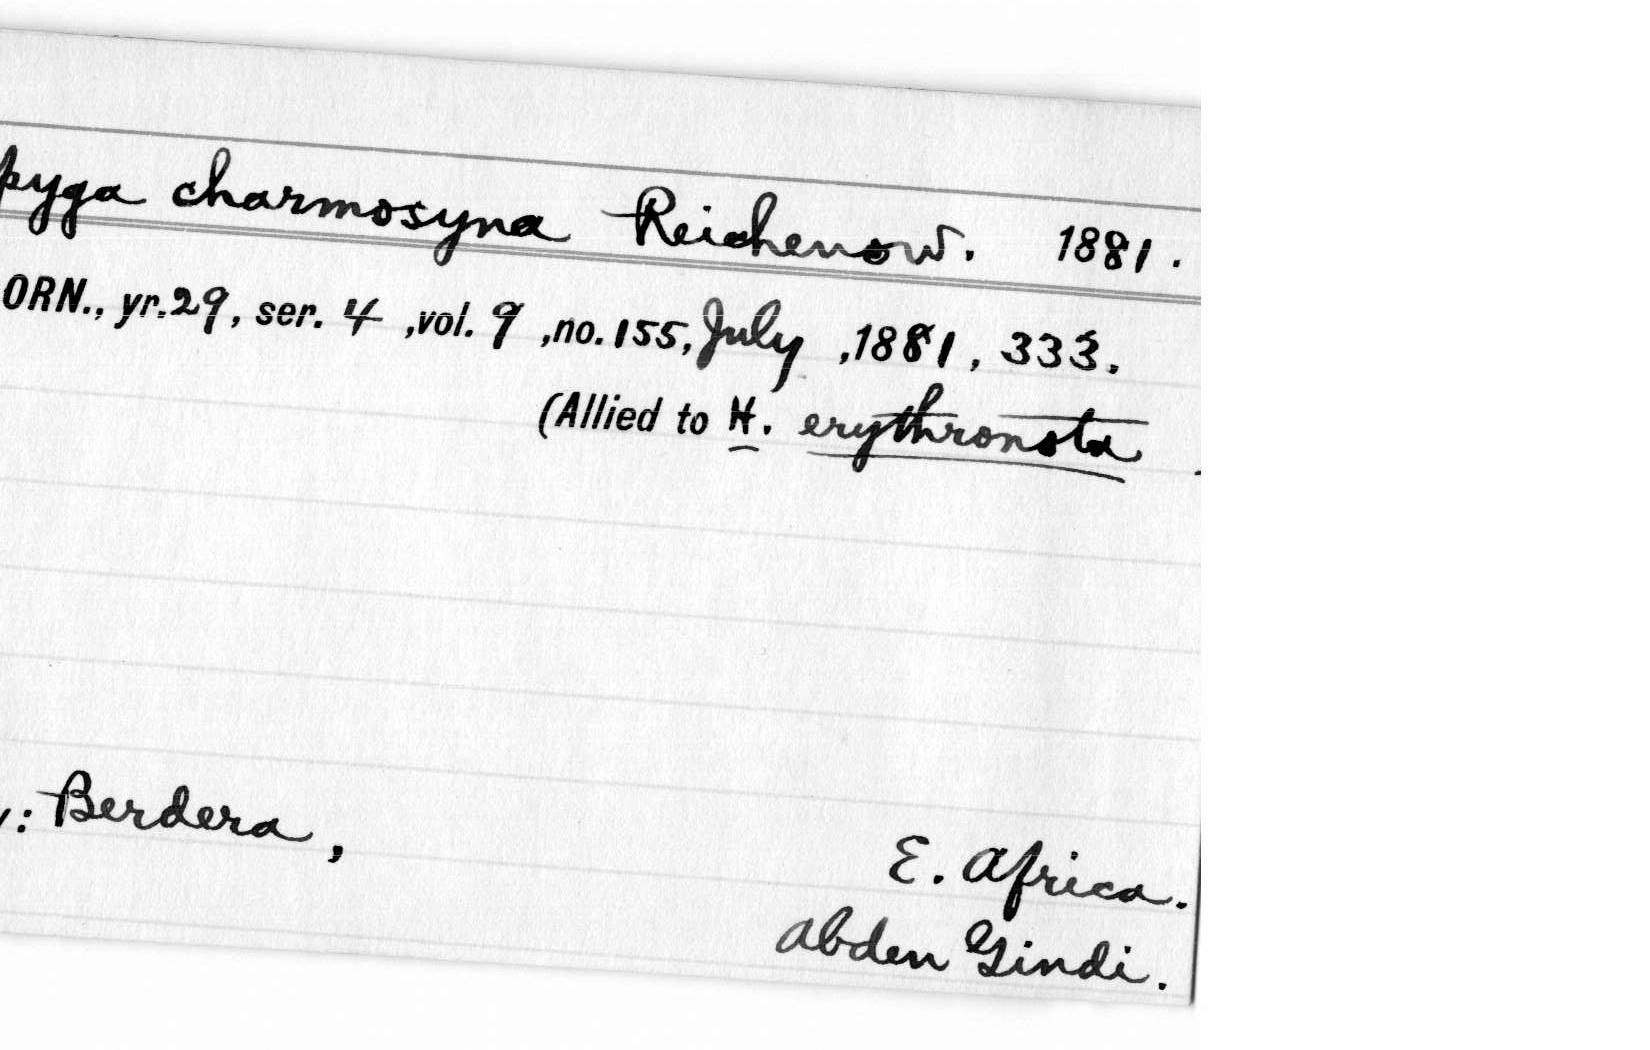 pyga charmosyna Reichenow. 1881.
ORN., yr.29, ser. 4 ,vol. 9 ,no.155, July ,1881, 333.
(Allied to H. erythronota
: Berdera,
E. Africa.
Abden Gindi.